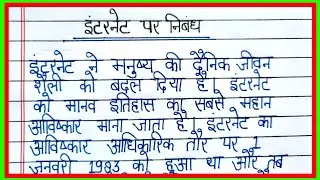 इंटरनेट पर निबंध
इंटरनेट ने मनुष्य की दैनिक जीवन
शैली को बदल दिया है। इंटरनेट
को मानव इतिहास का सबसे महान
आविष्कार माना जाता है। इंटरनेट का
आविष्कार आधिकारिक तौर पर 1
जनवरी 1983 को हुआ था और तब